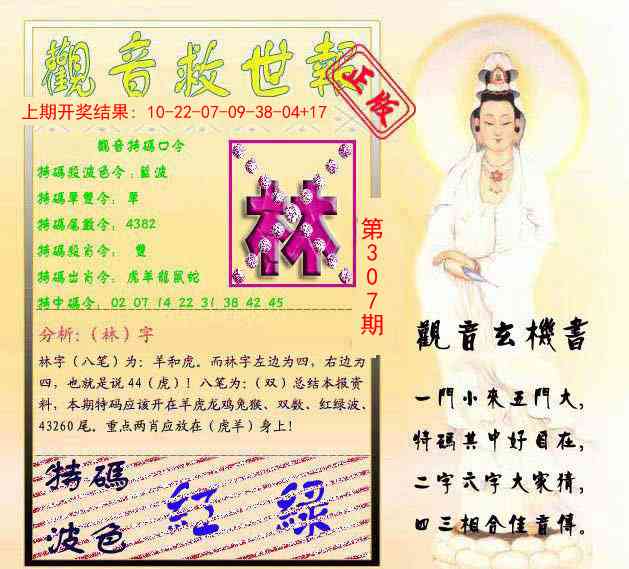 觀音救世報
正版
上期开奖结果：10-22-07-09-38-04+17
觀音特碼口令
特碼殺波色令：藍波
特碼單雙令：單
特碼尾數令：4382
特碼殺肖令：雙
特碼出肖令：虎羊龍鼠蛇
特中碼令：02 07 14 22 31 38 42 45
林
第307期
分析:（林）字
林字（八笔）为：羊和虎。而林字左边为四，右边为
四，也就是说44（虎）！八笔为：（双）总结本报资
料，本期特码应该开在羊虎龙鸡兔猴、双数、红绿波、
43260尾。重点两肖应放在（虎羊）身上！
特碼
波色
紅 綠
觀音玄機書
一門小來五門大，
特碼其中好自在，
二字六字大家猜，
四三相合佳音傳。